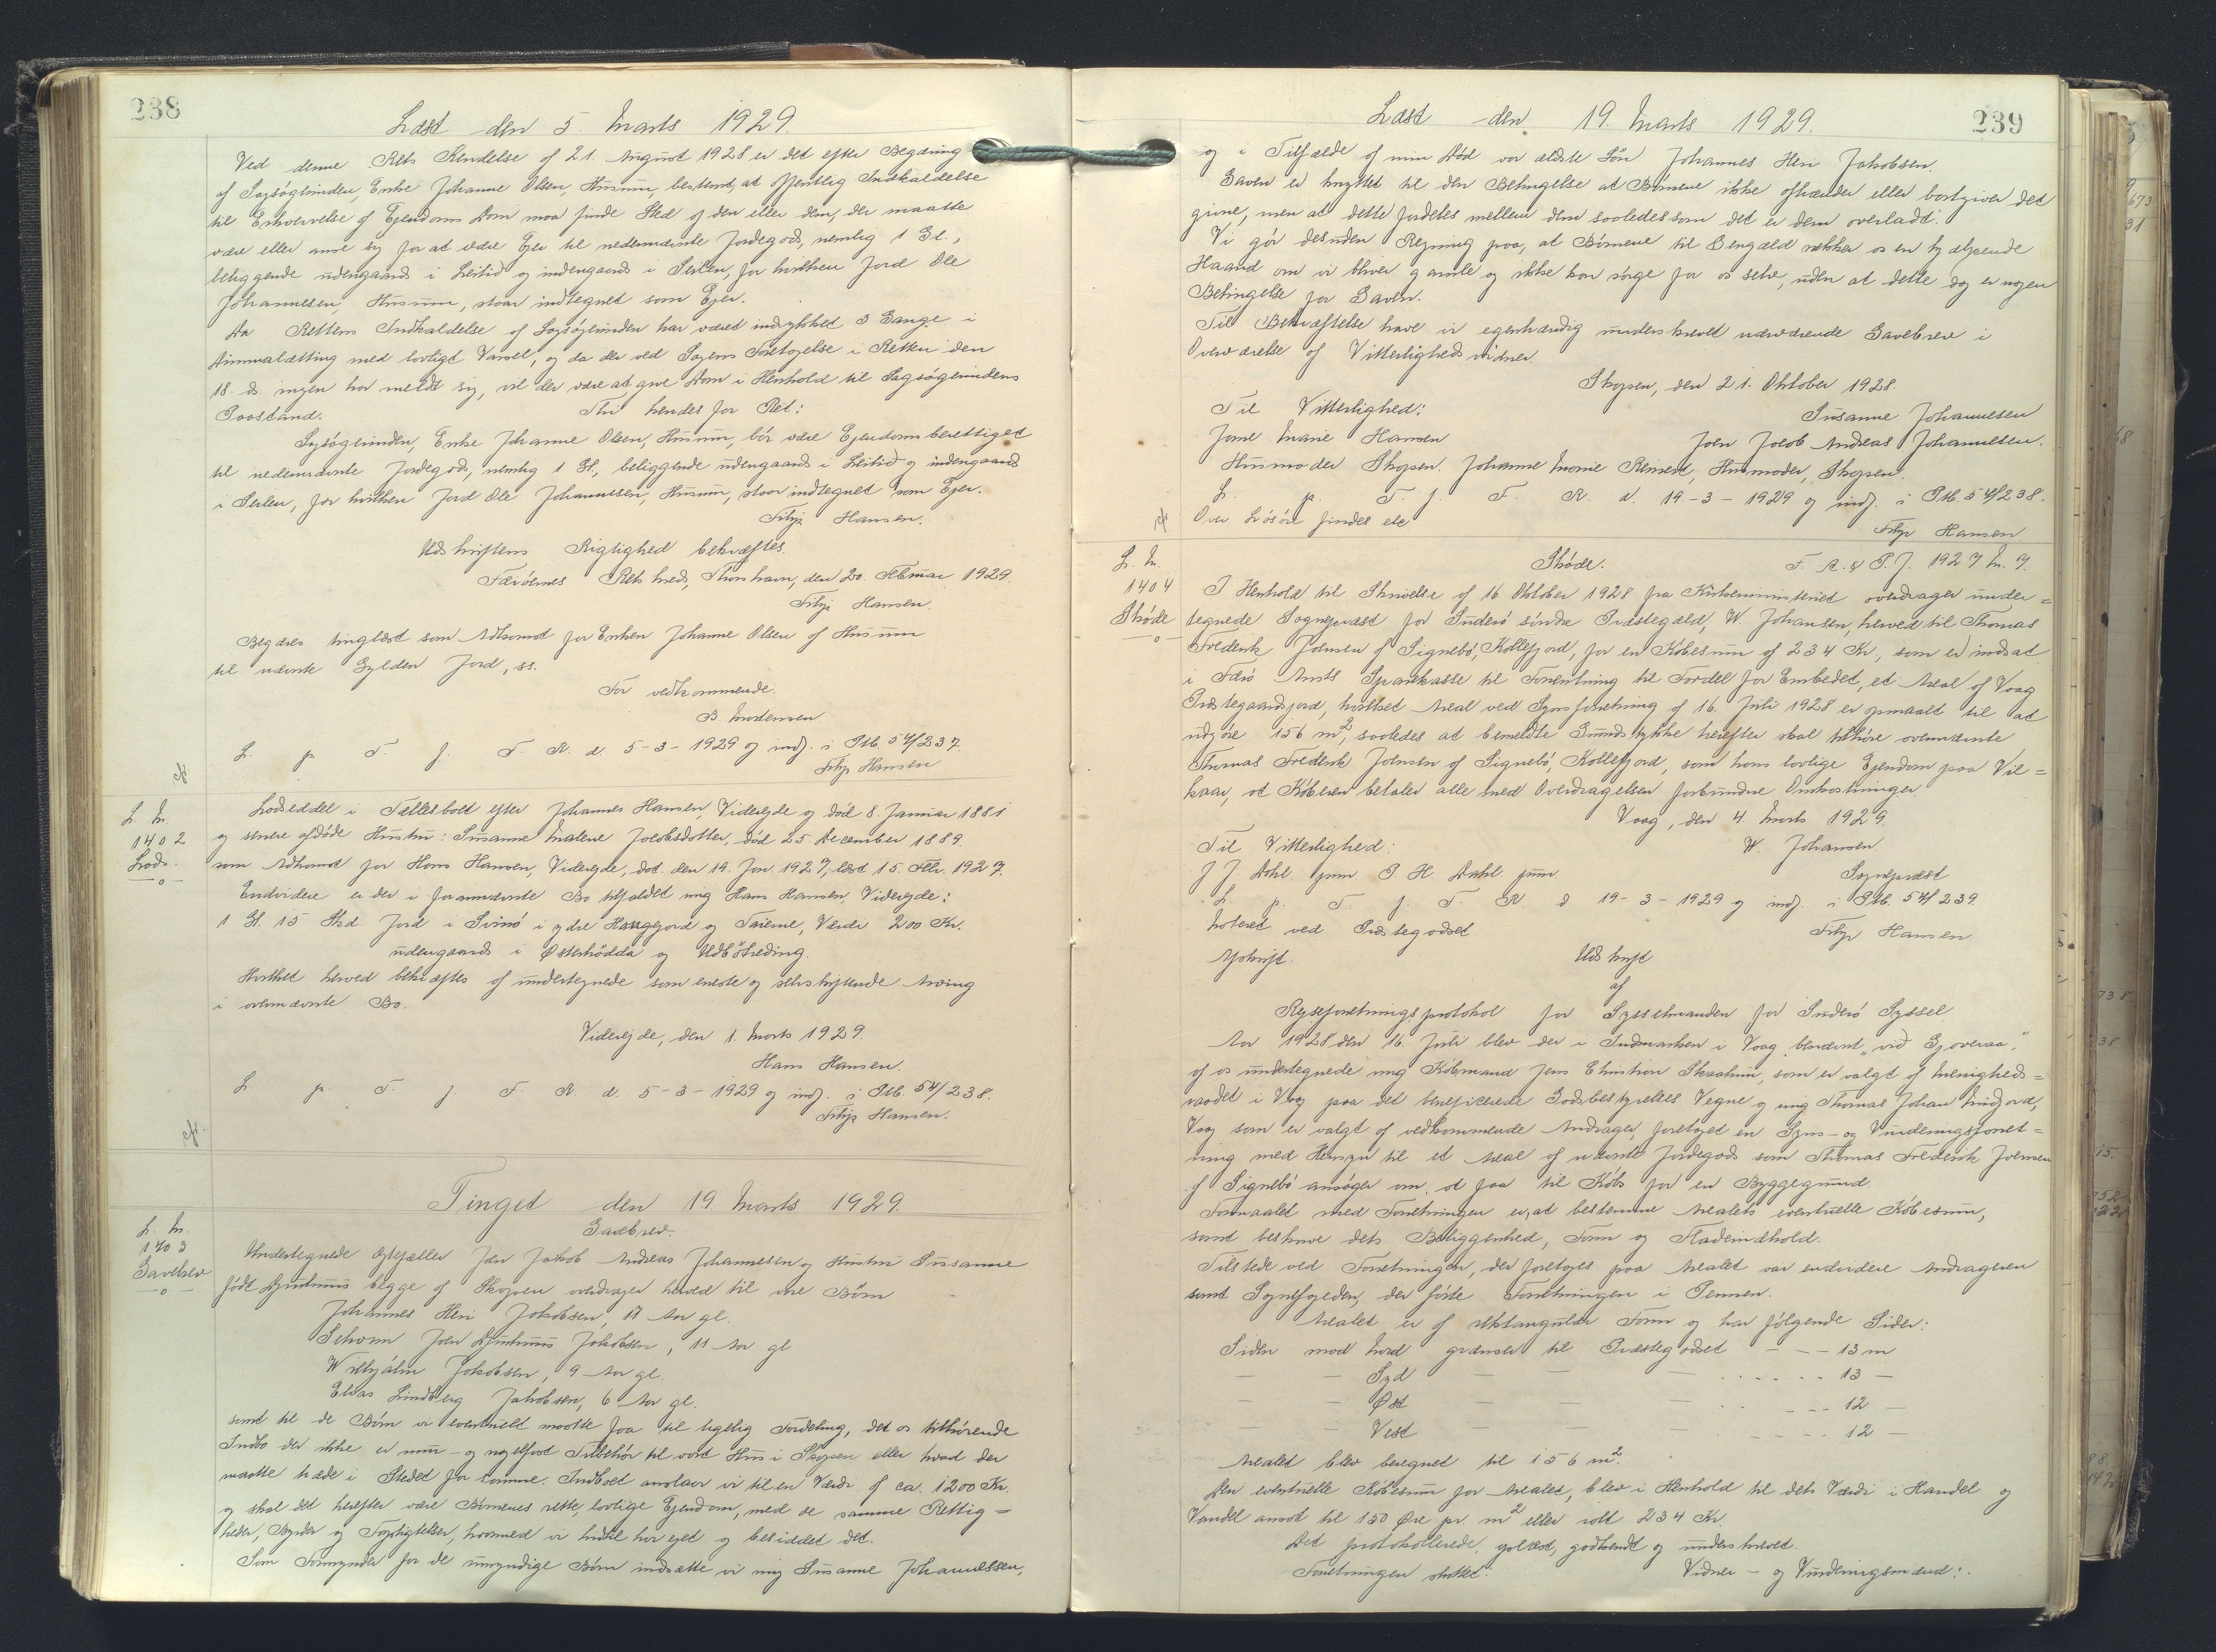 238
Læst den 5. Marts 1929.
Ved denne Rets Kendelse af 21. August 1928 er det efter Begæring
af Sagsøgerinden, Enke Johanne Olsen, Husum, bestemt, at offentlig Indkaldelse
til Erhvervelse af Ejendoms Dom maa finde Sted af den eller dem, der maatte
være eller anse sig for at være Ejer til nedennævnte Jordegods, nemlig 1 Gl.,
beliggende udengaards i Leitid og indengaards i Seilen, for hvilken Jord Ole
Johannesen, Husum, staar indtegnet som Ejer.
Da Rettens Indkaldelse af Sagsøgerinden har været indrykket 3 Gange i
Dimmalætting med lovligt Varsel, og da der ved Sagens Foretagelse i Retten den
18. ds. ingen har meldt sig, vil der være at give Dom i Henhold til Sagsøgerindens
Paastand. Thi kendes for Ret:
Sagsøgerinden, Enke Johanne Olsen, Husum, bør være Ejendomsberettiget
til nedennævnte Jordegods, nemlig 1 Gl., beliggende udengaards i Leitid og indengaards
i Seilen, for hvilken Jord Ole Johannesen, Husum, staar indtegnet som Ejer.
Filip Hansen.
Udskriftens Rigtighed bekræftes.
Færøernes Retskreds, Thorshavn, den 20. Februar 1929.
Filip Hansen.
Begæres tinglæst som Adkomst for Enken Johanne Olsen af Husum
til nævnte Gylden Jord, ss.
For vedkommende.
B. Mortensen.
L. p. T. f. F. R. d. 5-3-1929 og indf. i Ptb. 54/237.
Filip Hansen
L. N.
1402
Lods.
—o—
Lodseddel i Fællesboet efter Johannes Hansen, Videreide og død 8. Januar 1881
og senere afdøde Hustru: Susanne Malene Jacobsdotter, død 25. December 1889.
som Adkomst for Hans Hansen, Videreide, dat. den 19. Jan. 1927, læst 15. Febr. 1927.
Endvidere er der i forannævnte Bo tilfaldet mig Hans Hansen, Videreide:
1 Gl. 15 Skd Jord i Svinø i ydre Haugejord og Fairene, Værdi 200 Kr.
udengaards i Østerhødda og Udbøtreding.
Hvilket herved bekræftes af undertegnede som eneste og selvskiftende Arving
i ovennævnte Bo.
Videreide, den 1. Marts 1929.
Hans Hansen.
L. p. T. f. F. R. d. 5-3-1929 og indf. i Ptb. 54/238.
Filip Hansen.
Tinget den 19. Marts 1929.
L. N.
1403
Gavebrev
—o—
Gavebrev.
Undertegnede Ægtefæller Jan Jakob Andreas Johannesen og Hustru Susanne
født Djurhuus begge af Skopen overdrager herved til vore Børn
Johannes Heri Jakobsen, 17 Aar gl.
Schonn Joen Djurhuus Jakobsen, 11 Aar gl.
Wilhjálm Jakobsen, 9 Aar gl.
Elias Lindberg Jakobsen, 6 Aar gl.
samt til de Børn vi eventuelt maatte faa til ligelig Fordeling, det os tilhørende
Indbo der ikke er mur- og nagelfast Tilbehør til vort Hus i Skopen eller hvad der
maatte træde i Stedet for samme. Indboet anslaar vi til en Værdi af ca. 1200 Kr.
og skal det herefter være Børnenes rette, lovlige Ejendom, med de samme Rettig-
heder, Byrder og Forpligtelser, hvormed vi hidtil har ejet og besiddet det.
Som Formynder for de umyndige Børn indsætte vi mig Susanne Johannessen,
239
Læst den 19. Marts 1929.
og i Tilfælde af min Død vor ældste Søn Johannes Heri Jakobsen.
Gaven er knyttet til den Betingelse at Børnene ikke afhænder eller bortgiver det
givne, men at dette fordeles mellem dem saaledes som det er dem overladt.
Vi gör desuden Regning paa, at Børnene til Gengæld rækker os en hjælpende
Haand om vi bliver gamle og ikke kan sørge for os selv, uden at dette dog er nogen
Betingelse for Gaven.
Til Bekræftelse have vi egenhændig underskrevet nærværende Gavebrev i
Overværelse af Vitterlighedsvidner.
Skopen, den 21. Oktober 1928.
Til Vitterlighed: Susanne Johannesen
Jane Marie Hansen Joen Jacob Andreas Johannesen.
Husmoder Skopen. Johanne Marie Reinert, Husmoder, Skopen.
L. p. T. f. F. R. d. 19-3-1929 og indf. i Ptb. 54/238.
Over Løsøre findes ele
Filip Hansen
L. N.
1404
Skøde
—o—
Skøde. F. R. & P. J. 1927 N. 7.
I Henhold til Skrivelse af 16. Oktober 1928 fra Kirkeministeriet overdrager under=
tegnede Sognepræst for Suderø søndre Præstegæld, W. Johansen, herved til Thomas
Frederik Joensen af Signebø, Kollefjord, for en Købesum af 234 Kr., som er indsat
i Færø Amts Sparekasse til Forrentning til Fordel for Embedet, et Areal af Vaag
Præstegaardsjord, hvilket Areal ved Synsforretning af 16. Juli 1928 er opmaalt til at
udgøre 156 m², saaledes at bemeldte Grundstykke herefter skal tilhøre ovennævnte
Thomas Frederik Joensen af Signebø, Kollefjord, som hans lovlige Ejendom paa Vil=
kaar, at Køberen betaler alle med Overdragelsen forbundne Omkostninger.
Vaag, den 4. Marts 1929.
Til Vitterlighed: W. Johansen.
J. J. Dahl. jun P. H. Dahl jun. Sognepræst
L. p. T. f. F. R. d. 19-3-1929 og indf. i Ptb. 54/239.
Noteret ved Præstegodset Filip Hansen
Afskrift. Udskrift
af
Rejseforretningsprotokol for Sysselmanden for Suderø Syssel.
Aar 1928 den 16. Juli blev der i Indmarken i Vaag benævnt "við Gjoveraa",
af os undertegnede mig Købmand Jens Christian Skaalum, som er valgt af Menigheds=
raadet i Vaag paa det beneficerede Godsbestyrelses Vegne og mig Thomas Johan Midjord,
Vaag som er valgt af vedkommende Andrager, foretaget en Syns- og Vurderingsforret=
ning med Hensyn til et Areal af nævnte Jordegods som Thomas Frederik Joensen
af Signebø ansøger om at faa til Købs for en Byggegrund.
Formaalet med Forretningen er, at bestemme Arealets eventuelle Købesum,
samt beskrive dets Beliggenhed, Form og Fladeindhold.
Tilstede ved Forretningen, der foretoges paa Arealet var endvidere Andrageren
samt Sognefogeden, der førte Forretningen i Pennen.
Arealet er af rektangulær Form og har følgende Sider:
Siden mod Nord grænser til Præstegodset - - - 13 m
— — Syd — — — - - - 13 —
— — Øst — — — - - - 12 —
— — Vest — — — - - - 12 —
Arealet blev beregnet til 156 m².
Den eventuelle Købesum for Arealet, blev i Henhold til dets Værdi i Handel og
Vandel ansat til 150 Øre pr. m² eller ialt 234 Kr.
Det protokollerede oplæst, godkendt og underskrevet.
Forretningen sluttet. Vidner - og Vurderingsmænd: